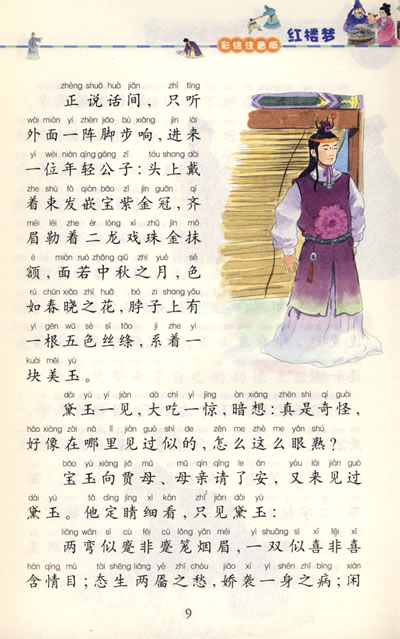 彩绘注音版 红楼梦
zhèng shuō huà jiān zhǐ tīng
正说话间，只听
wài miàn yí zhèn jiǎo bù xiǎng jìn lái
外面一阵脚步响，进来
yí wèi nián qīng gōng zǐ tóu shang dài
一位年轻公子：头上戴
zhe shù fà qiàn bǎo zǐ jīn guān qí
着束发嵌宝紫金冠，齐
méi lēi zhe èr lóng xì zhū jīn mǒ
眉勒着二龙戏珠金抹
é miàn ruò zhōng qiū zhī yuè sè
额，面若中秋之月，色
rú chūn xiǎo zhī huā bó zi shang yǒu
如春晓之花，脖子上有
yì gēn wǔ sè sī tāo jì zhe yí
一根五色丝绦，系着一
kuài měi yù
块美玉。
dài yù yí jiàn dà chī yì jīng àn xiǎng zhēn shì qí guài
黛玉一见，大吃一惊，暗想：真是奇怪，
hǎo xiàng zài nǎ lǐ jiàn guò shì de zěn me zhè me yǎn shú
好像在哪里见过似的，怎么这么眼熟？
bǎo yù xiàng jiǎ mǔ mǔ qīn qǐng le ān yòu lái jiàn guò
宝玉向贾母、母亲请了安，又来见过
dài yù tā dìng jīng xì kàn zhǐ jiàn dài yù
黛玉。他定睛细看，只见黛玉：
liǎng wān sì cù fēi cù lǒng yān méi yì shuāng sì xǐ fēi xǐ
两弯似蹙非蹙笼烟眉，一双似喜非喜
hán qíng mù tài shēng liǎng yè zhī chóu jiāo xí yì shēn zhī bìng xián
含情目；态生两靥之愁，娇袭一身之病；闲
9